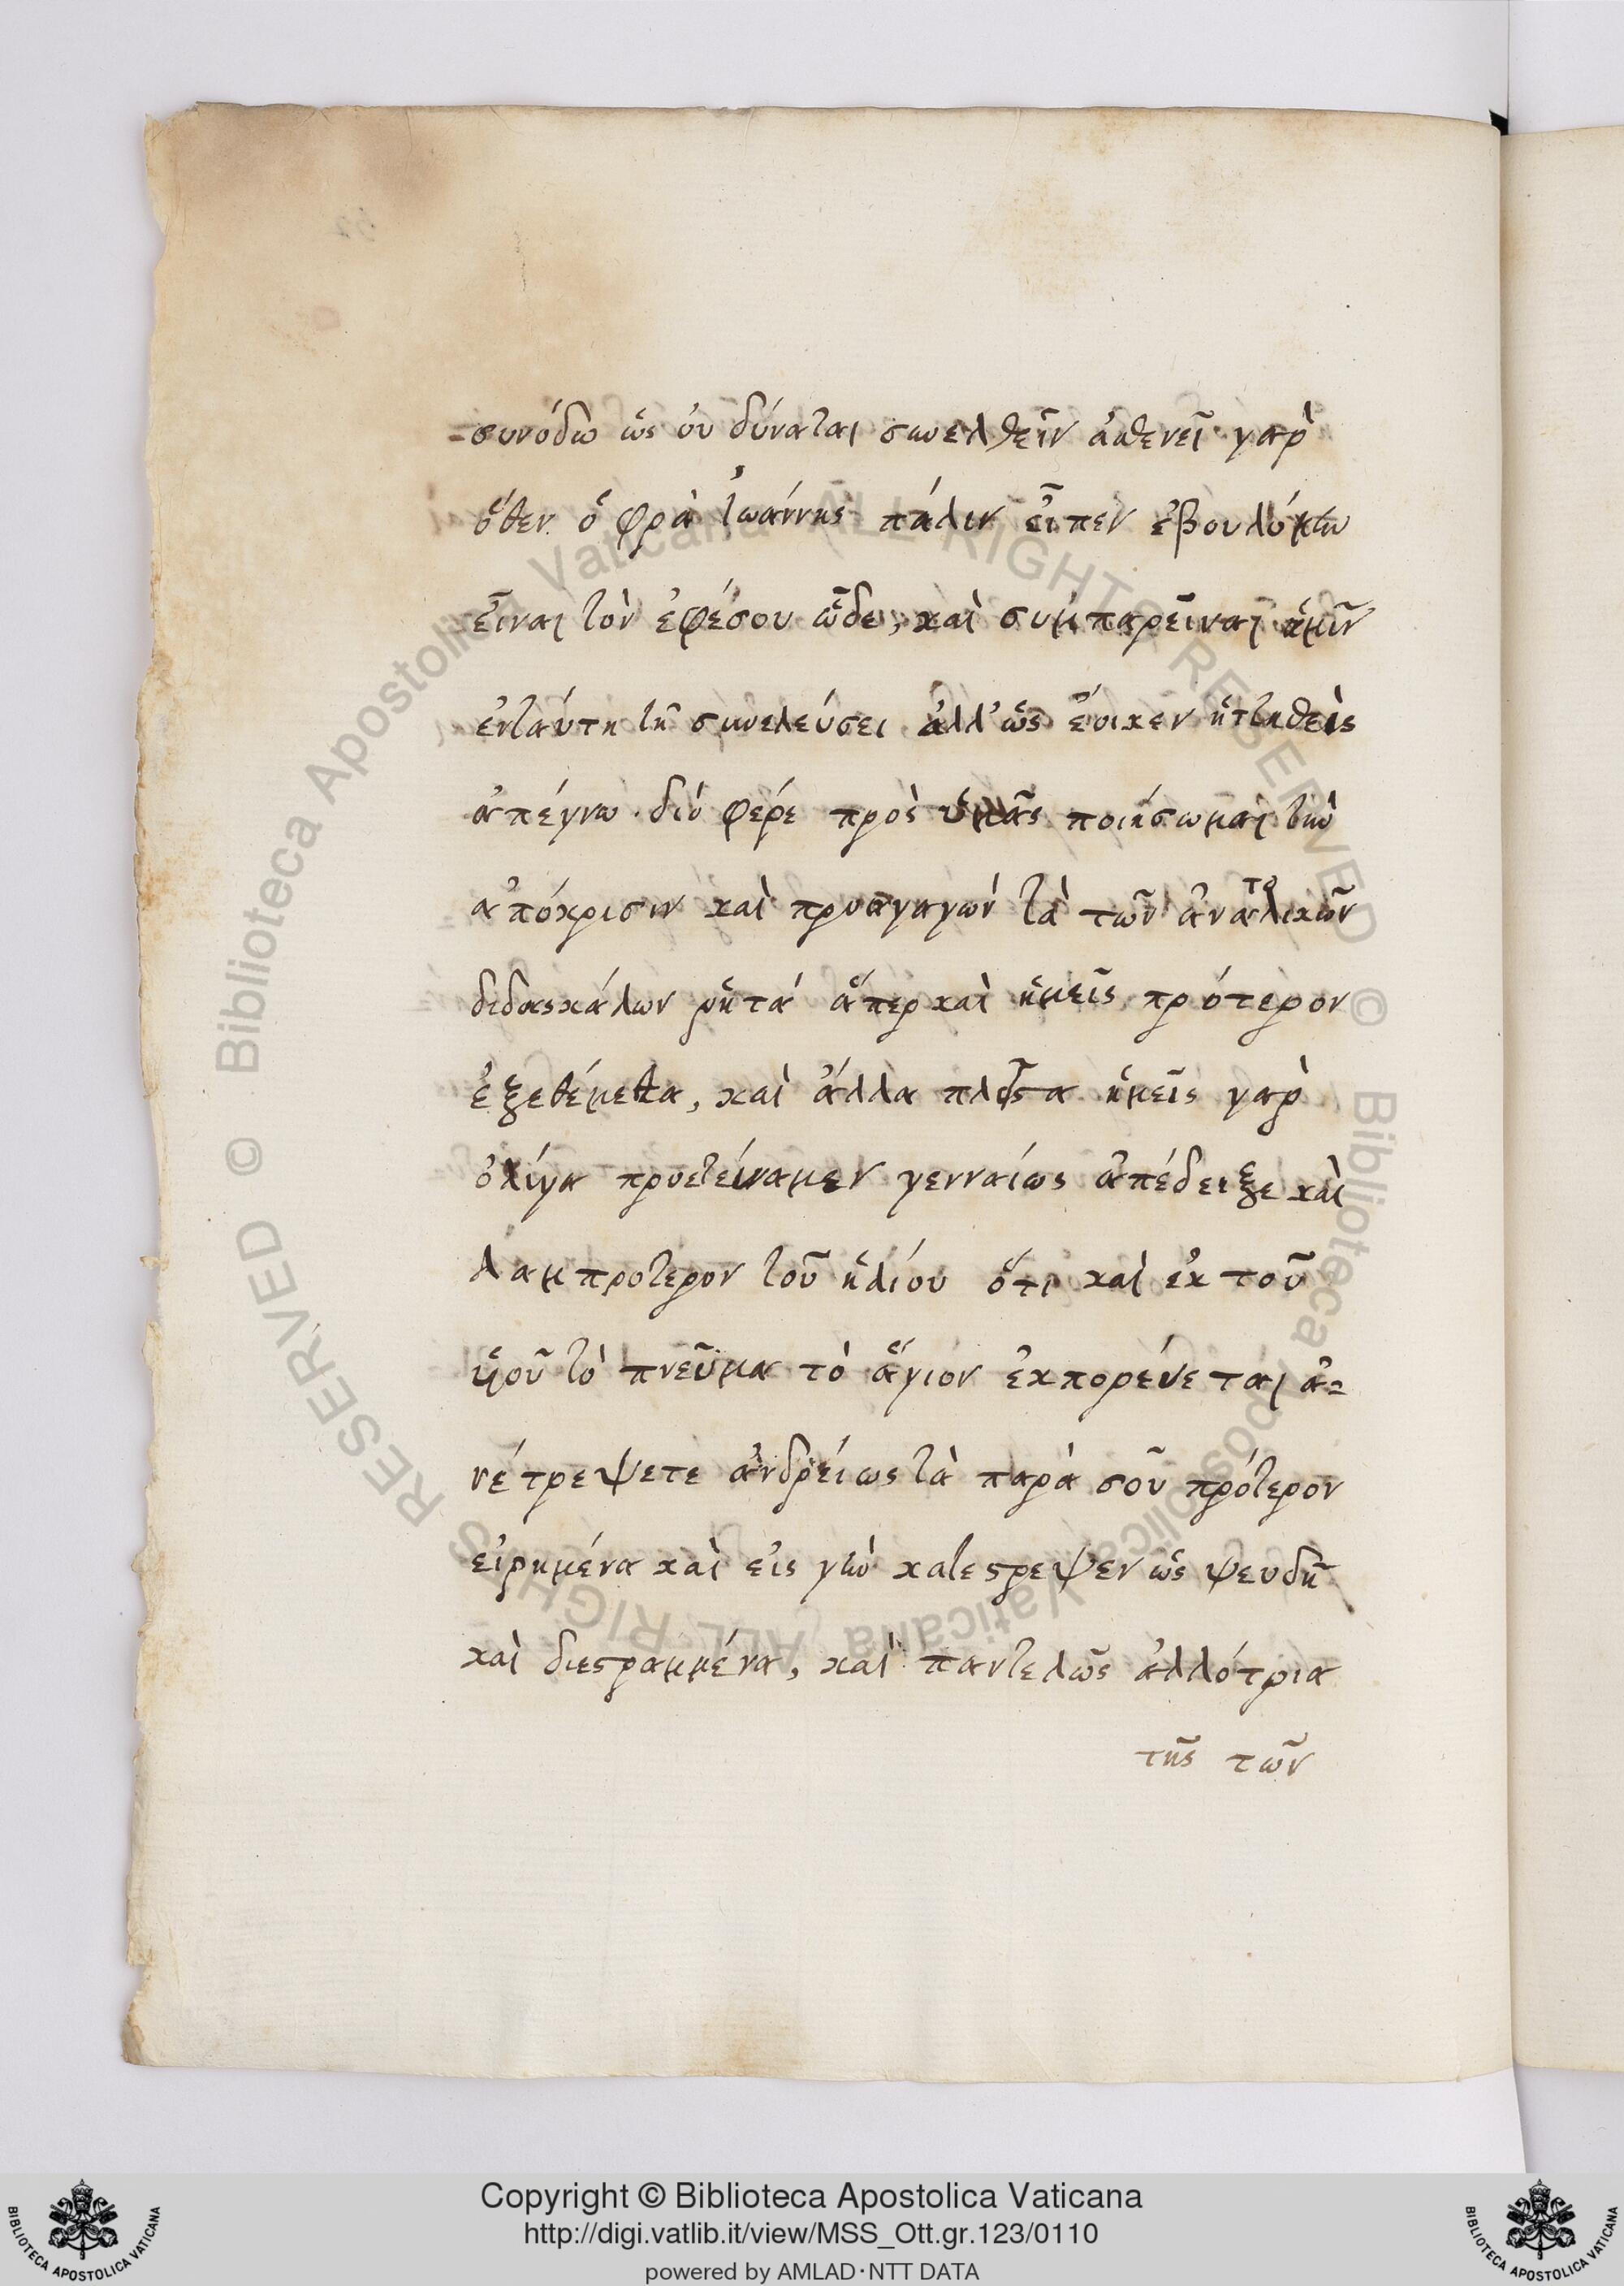 συνόδω ὡς ὀυ δύναται συνελθεῖν ἀσθενεῖ γαρ
ὅθεν ὁ φρὰ ἰωάννης πάλιν εἶπεν ἐβουλόμην
εἶναι τὸν ἐφέσου ὧδε, καὶ συμπαρεῖναι ἡμῖν
ἐνταύτη τῆ συνελεύσει ἀλλ' ὡς ἔοικεν ἡττηθεὶς
ἀπέγνω · διό φέρε πρὸς ὑμᾶς ποιήσωμαι τὴν
ἀπόκρισιν καὶ προαγαγών τὰ τῶν ἀνατολικῶν
διδασκάλων ῥητά ἅπερ καὶ ἡμεῖς πρότερον
ἐξεθέμεθα, καὶ ἄλλα πλεῖστα ἡμεῖς γαρ
ὀλίγα προετείναμεν γενναίως ἀπέδειξε καὶ
λαμπροτερον τοῦ ἡλίου ὅτι καὶ ἐκ τοῦ
υἱοῦ τὸ πνεῦμα τὸ ἅγιον ἐκπορεύεται ἀ=
νέτρεψετε ἀνδρείως τὰ παρά σοῦ πρότερον
εἰρημένα καὶ εἰς γῆν κατεστρεψεν ὡς ψευδῆ
καὶ διεστραμμένα, καὶ παντελῶς ἀλλότρια
τῆς τῶν
Copyright © Biblioteca Apostolica Vaticana
http://digi.vatlib.it/view/MSS_Ott.gr.123/0110
powered by AMLAD·NTT DATA
BIBLIOTECA APOSTOLICA VATICANA
BIBLIOTECA APOSTOLICA VATICANA
© Biblioteca Apostolica Vaticana ALL RIGHTS RESERVED
© Biblioteca Apostolica Vaticana ALL RIGHTS RESERVED